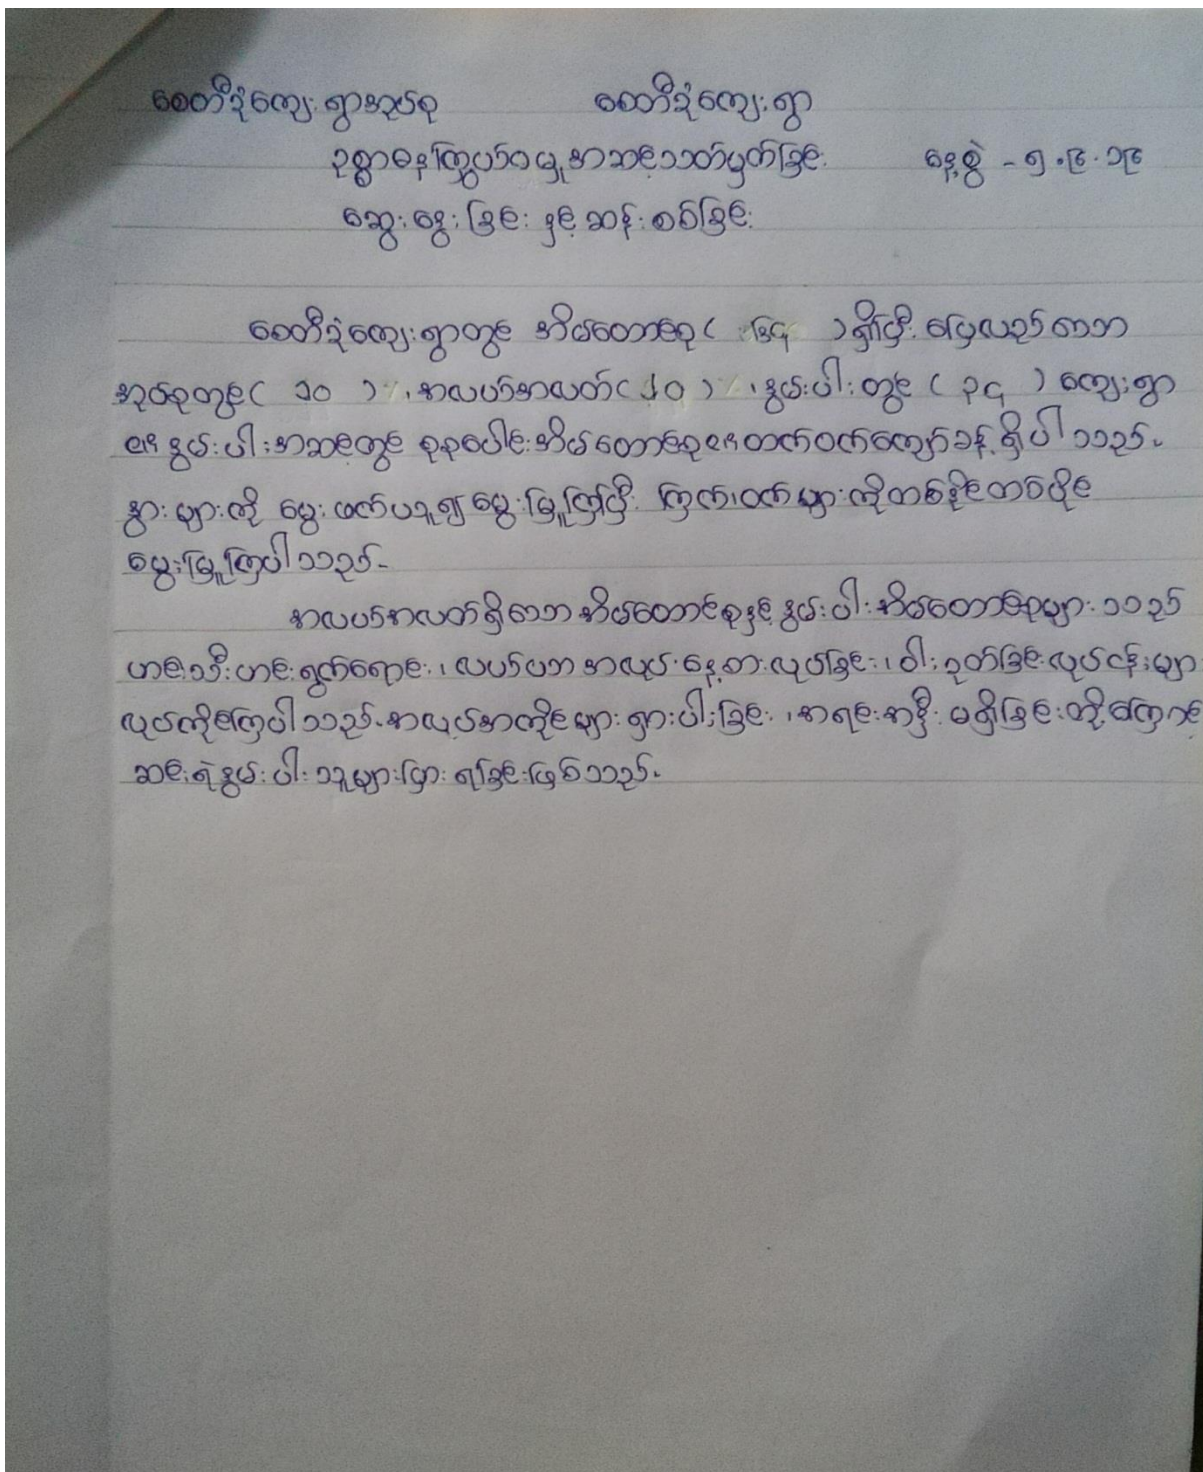 စေတီဒုံကျေးရွာအုပ်စု စေတီဒုံကျေးရွာ
ဥစ္စာဓနကြွယ်ဝမှုအဆင့်သတ်မှတ်ခြင်း နေ့စွဲ - ၅.၉.၁၉
ဆွေးနွေးခြင်းနှင့်ဆန်းစစ်ခြင်း
စေတီဒုံကျေးရွာတွင် အိမ်ထောင်စု ( ) ရှိပြီး ပြေလည်သော
အုပ်စုတွင် ( ၁၀ ) ၊ အလယ်အလတ် ( ၄၀ ) ၊ နွမ်းပါးတွင် ( ၃၄ ) ကျေးရွာ
၏ နွမ်းပါးအဆင့်တွင် စုစုပေါင်းအိမ်ထောင်စု၏ထက်ဝက်ကျော်ခန့်ရှိပါသည်။
နွားများကို မွေးဖက်ယူ၍ မွေးမြူကြပြီး ကြက်၊ဝက်များကိုတစ်နိုင်တစ်ပိုင်
မွေးမြူကြပါသည်။
အလယ်အလတ်ရှိသော အိမ်ထောင်စုနှင့် နွမ်းပါးအိမ်ထောင်စုများသည်
ဟင်းသီးဟင်းရွက်ရောင်း၊ လယ်ယာအလုပ်နေ့စားလုပ်ခြင်း၊ ဝါးခုတ်ခြင်းလုပ်ငန်းများ
လုပ်ကိုင်ကြပါသည်။အလုပ်အကိုင်များရှားပါးခြင်း၊အရင်းအနှီးမရှိခြင်းတို့ကြောင့်
ဆင်းရဲနွမ်းပါးသူများပြားရခြင်းဖြစ်သည်။